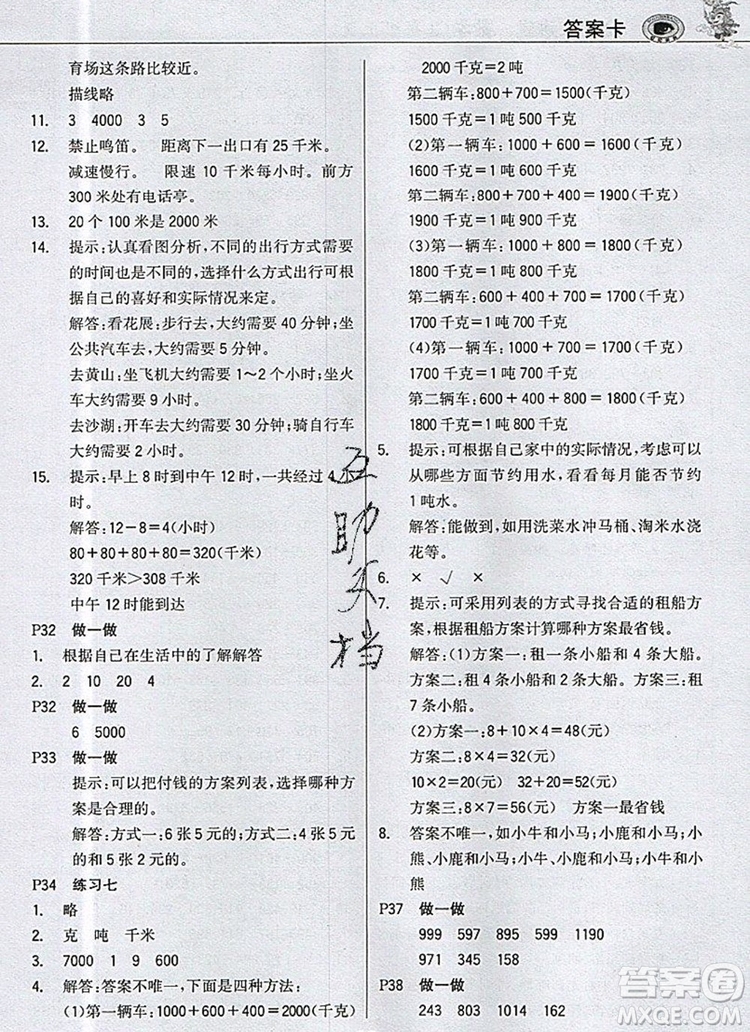 答案卡
育场这条路比较近。
描线略
11. 3 4000 3 5
12. 禁止鸣笛。 距离下一出口有 25 千米。
减速慢行。 限速 10 千米每小时。前方
300 米处有电话亭。
13. 20 个 100 米是 2000 米
14. 提示:认真看图分析,不同的出行方式需要
的时间也是不同的,选择什么方式出行可根
据自己的喜好和实际情况来定。
解答:看花展:步行去,大约需要 40 分钟;坐
公共汽车去,大约需要 5 分钟。
去黄山:坐飞机大约需要 1~2 个小时;坐火
车大约需要 9 小时。
去沙湖:开车去大约需要 30 分钟;骑自行车
大约需要 2 小时。
15. 提示:早上 8 时到中午 12 时,一共经过 4 小
时。
解答:12-8=4(小时)
80+80+80+80=320(千米)
320 千米>308 千米
中午 12 时能到达
P32 做一做
1. 根据自己在生活中的了解解答
2. 2 10 20 4
P32 做一做
6 5000
P33 做一做
提示:可以把付钱的方案列表,选择哪种方
案是合理的。
解答:方式一:6 张 5 元的。方式二:4 张 5 元
的和 5 张 2 元的。
P34 练习七
1. 略
2. 克 吨 千米
3. 7000 1 9 600
4. 解答:答案不唯一,下面是四种方法:
(1)第一辆车:1000+600+400=2000(千克)
2000 千克=2 吨
第二辆车:800+700=1500(千克)
1500 千克=1 吨 500 千克
(2)第一辆车:1000+600=1600(千克)
1600 千克=1 吨 600 千克
第二辆车:800+700+400=1900(千克)
1900 千克=1 吨 900 千克
(3)第一辆车:1000+800=1800(千克)
1800 千克=1 吨 800 千克
第二辆车:600+400+700=1700(千克)
1700 千克=1 吨 700 千克
(4)第一辆车:1000+700=1700(千克)
1700 千克=1 吨 700 千克
第二辆车:600+400+800=1800(千克)
1800 千克=1 吨 800 千克
5. 提示:可根据自己家中的实际情况,考虑可以
从哪些方面节约用水,看看每月能否节约
1 吨水。
解答:能做到,如用洗菜水冲马桶、淘米水浇
花等。
6. × √ ×
7. 提示:可采用列表的方式寻找合适的租船方
案,根据租船方案计算哪种方案最省钱。
解答:(1)方案一:租 1 条小船和 4 条大船。
方案二:租 4 条小船和 2 条大船。方案三:租
7 条小船。
(2)方案一:8+10×4=48(元)
方案二:8×4=32(元)
10×2=20(元) 32+20=52(元)
方案三:8×7=56(元) 方案一最省钱
8. 答案不唯一,如小牛和小马;小鹿和小马;小
熊、小鹿和小马;小牛、小鹿和小马;小牛和小
熊
P37 做一做
999 597 897 590 1110
971 345 158
P38 做一做
243 803 1014 162
互助文档
答案圈
MXQE.COM